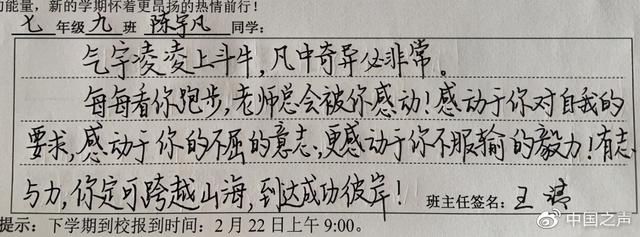 能量，新的学期怀着更昂扬的热情前行！
七 年级 九 班 陈宇凡 同学：
气宇凌凌上斗牛，凡中奇异必非常。
每每看你跑步，老师总会被你感动！感动于你对自我的
要求，感动于你的不屈的意志，更感动于你不服输的毅力！有志
与力，你定可跨越山海，到达成功彼岸！ 班主任签名：王
提示：下学期到校报到时间：2 月 22 日上午 9:00。
@中国之声